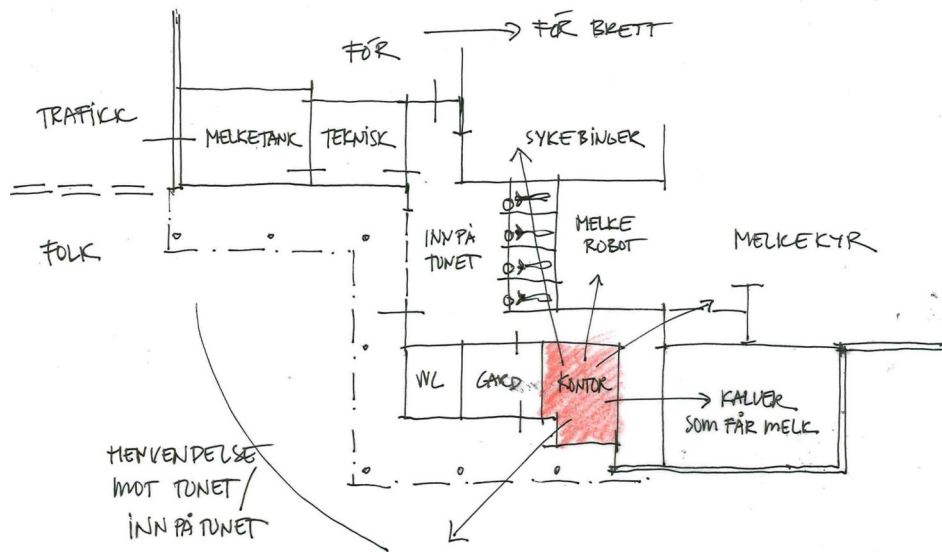 FÔR
FÔR BRETT
TRAFIKK
MELKETANK
TEKNISK
SYKEBINGER
FOLK
INN PÅ
TUNET
MELKE
ROBOT
MELKEKYR
WC
GARD
KONTOR
KALVER
SOM FÅR MELK
HENVENDELSE
MOT TUNET/
INN PÅ TUNET